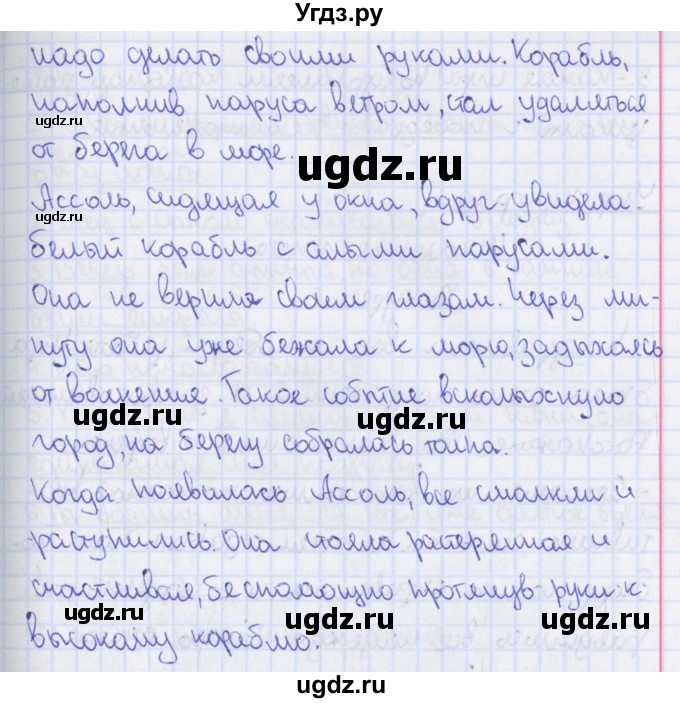 Угдз.ру
надо делать своими руками. Корабль,
наполнив паруса ветром, стал удаляться
gdz.ru
от берега в море.
ugdz.ru
Ассоль, сидящая у окна, вдруг увидела
белый корабль с алыми парусами.
Она не верила своим глазам. Через ми-
нуту она уже бежала к морю, задыхаясь
от волнения. Такое событие всколыхнуло
ugdz.ru ugdz.ru
город, на берегу собралась толпа.
Когда появилась Ассоль, все смолкли и
расступились. Она стояла растерянная и
счастливая, беспомощно протянув руки к
ugdz.ru ugdz.ru ugdz.ru
высокому кораблю.
ugdz.ru